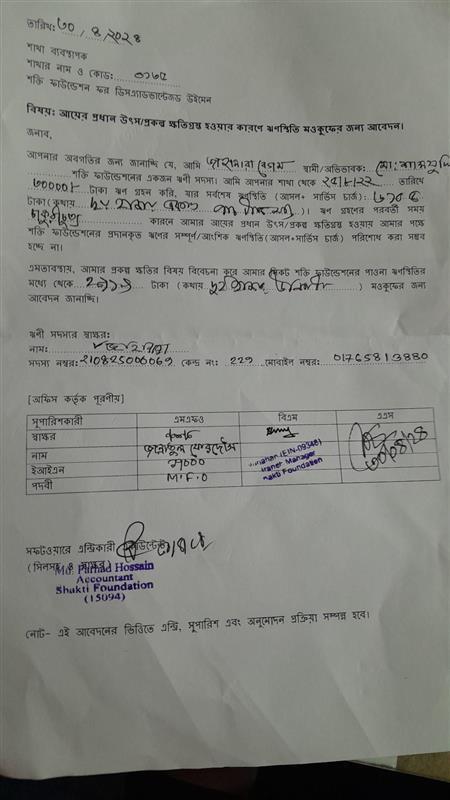 তারিখ: ৩০ / ৪ / ২০২৪
শাখা ব্যবস্থাপক
শাখার নাম ও কোড:
শক্তি ফাউন্ডেশন ফর ডিসএ্যাডভান্টেজড উইমেন
বিষয়: আয়ের প্রধান উৎস/প্রকল্প ক্ষতিগ্রস্থ হওয়ার কারণে ঋণস্থিতি মওকুফের জন্য আবেদন।
জনাব,
আপনার অবগতির জন্য জানাচ্ছি যে, আমি বেগম স্বামী/অভিভাবক: মো:
শক্তি ফাউন্ডেশনের একজন ঋণী সদস্য। আমি আপনার শাখা থেকে তারিখে
৩০০০০/- টাকা ঋণ গ্রহন করি, যার সর্বশেষ ঋণস্থিতি (আসল+ সার্ভিস চার্জ):
টাকা(কথায় )। ঋণ গ্রহণের পরবর্তী সময়
কারনে আমার আয়ের প্রধান উৎস/প্রকল্প ক্ষতিগ্রস্থ হওয়ায় আমার পক্ষে
শক্তি ফাউন্ডেশনের প্রদানকৃত ঋণের সম্পূর্ণ/আংশিক ঋণস্থিতি(আসল+ সার্ভিস চার্জ) পরিশোধ করা সম্ভব
হচ্ছে না।
এমতাবস্থায়, আমার প্রকল্প ক্ষতির বিষয় বিবেচনা করে আমার নিকট শক্তি ফাউন্ডেশনের পাওনা ঋণস্থিতির
মধ্যে থেকে টাকা (কথায় ) মওকুফের জন্য
আবেদন জানাচ্ছি।
ঋণী সদস্যর স্বাক্ষর:
নাম:
সদস্য নম্বর: কেন্দ্র নং: ২২৯ মোবাইল নম্বর: 01765813880
[অফিস কর্তৃক পূরণীয়]
সুপারিশকারী এমএফও বিএম এএস
স্বাক্ষর
নাম ফেরদৌস
ইআইএন
পদবী M.F.O
(EIN-09348)
Manager
Shakti Foundation
৩০/০৪/২৪
সফটওয়ারে এন্ট্রিকারী একাউন্টেন্ট
(সিলসহ ও স্বাক্ষর)
Md. Farhad Hossain
Accountant
Shakti Foundation
(15094)
নোট- এই আবেদনের ভিত্তিতে এন্ট্রি, সুপারিশ এবং অনুমোদন প্রক্রিয়া সম্পন্ন হবে।